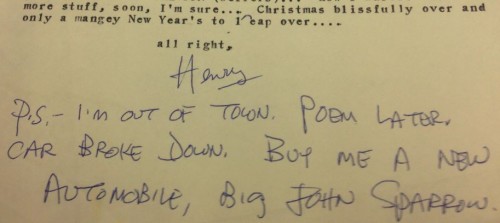 more stuff, soon, I'm sure... Christmas blissfully over and
only a mangey New Year's to leap over....
all right,
Henry
P.S.- I'M OUT OF TOWN. POEM LATER.
CAR BROKE DOWN. BUY ME A NEW
AUTOMOBILE, BIG JOHN SPARROW.